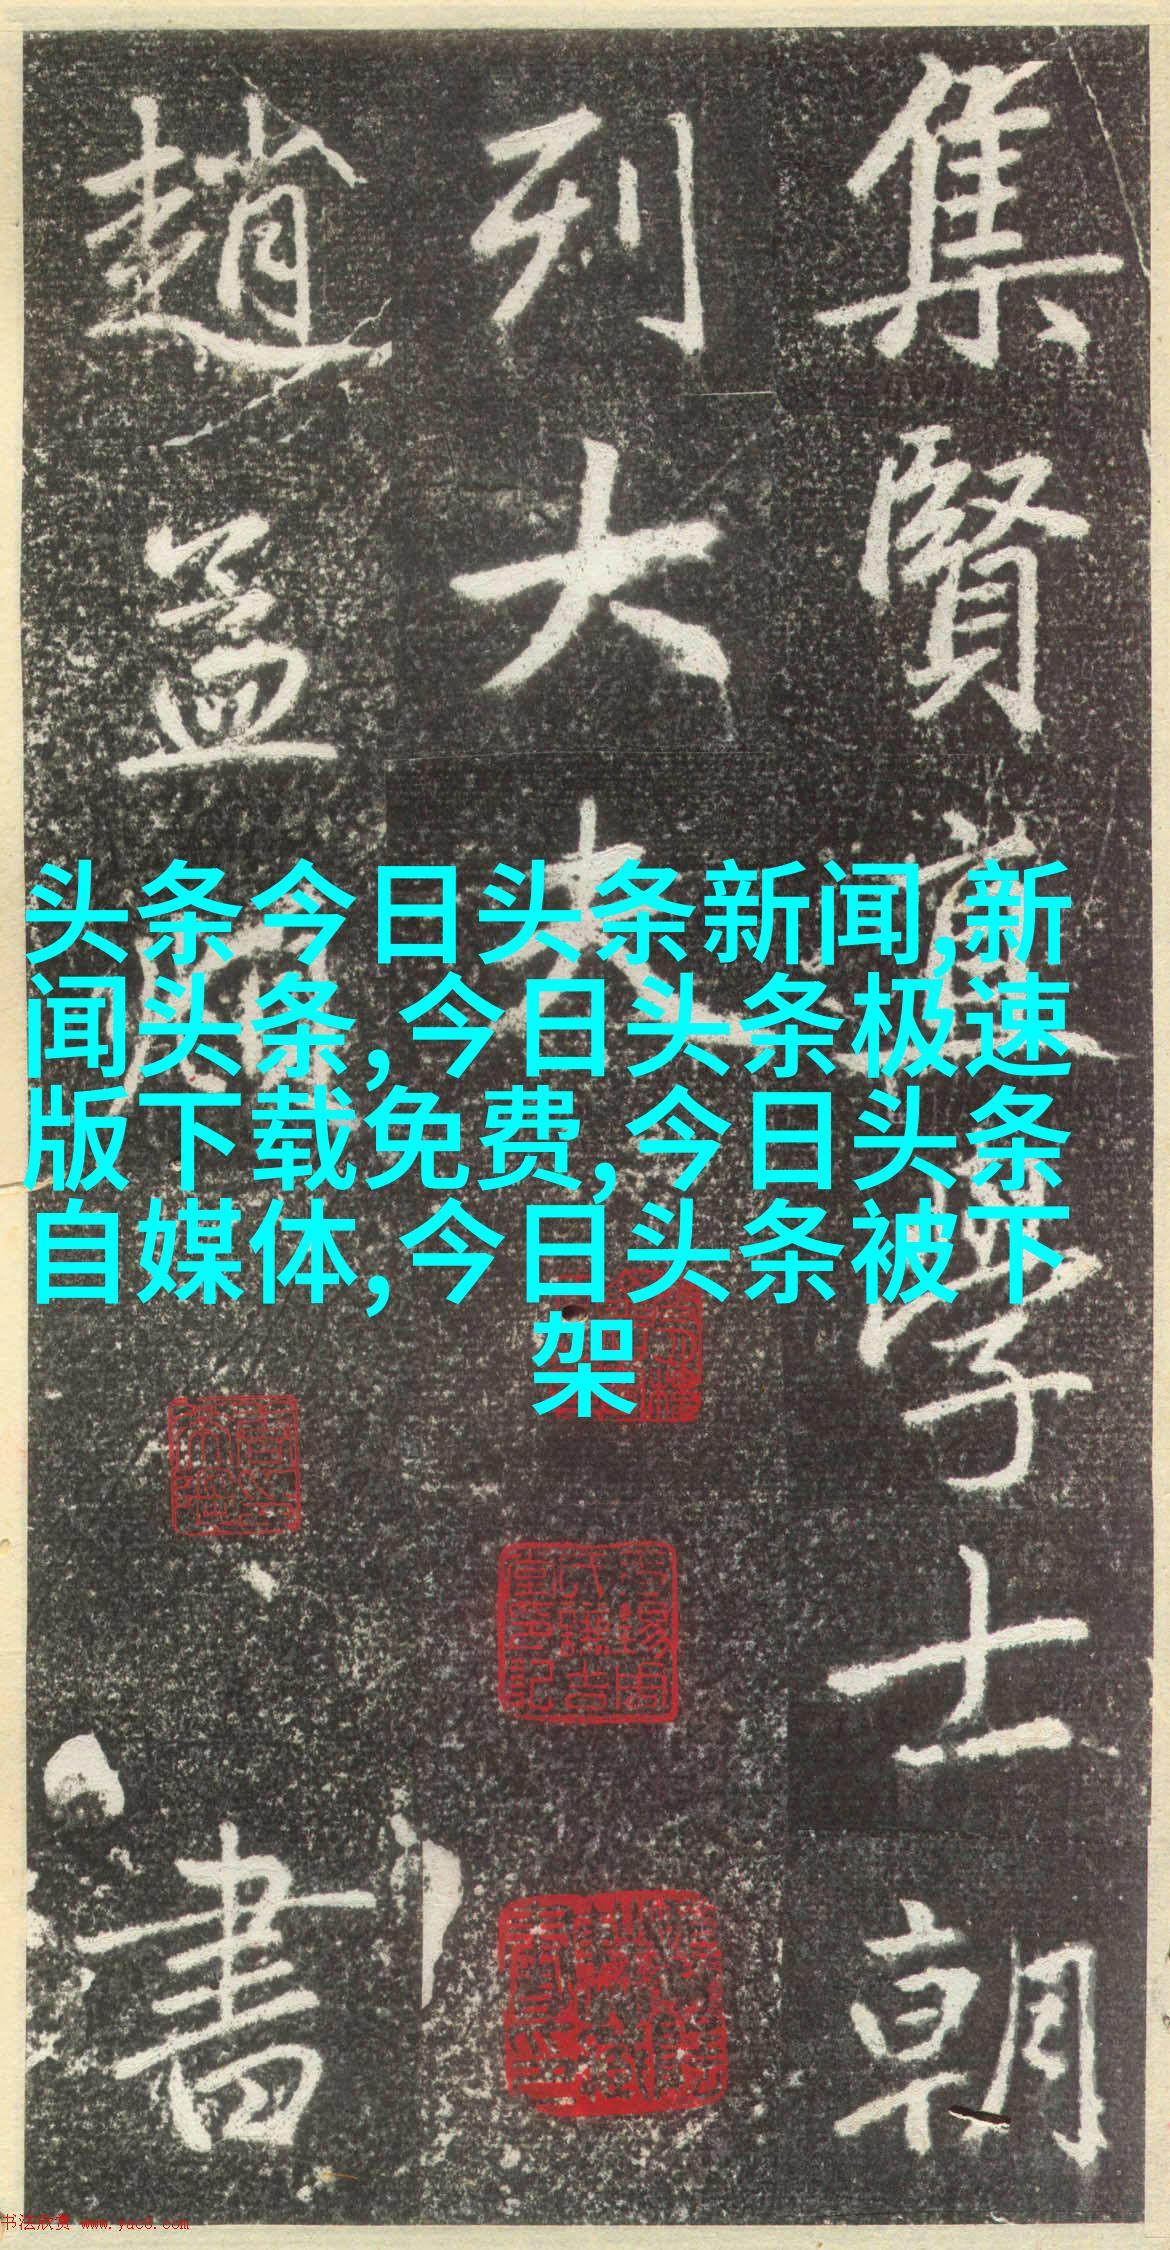 集賢直學士朝
列大夫
趙孟頫
書
头条今日头条新闻,新
闻头条,今日头条极速
版下载免费,今日头条
自媒体,今日头条被下
架
书法欣赏 www.yac8.com